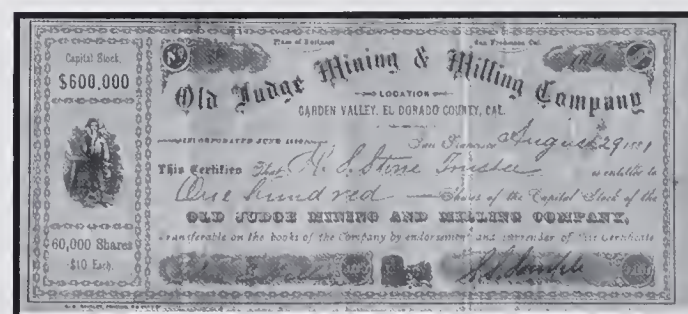 Capital Stock,
$600,000
60,000 Shares
$10 Each.
No
Place of Business
San Francisco Cal.
100
Old Judge Mining & Milling Company
LOCATION
GARDEN VALLEY, EL DORADO COUNTY, CAL.
INCORPORATED JUNE
San Francisco August 29 1881
This Certifies That H. S. Stone Trustee is entitled to
One hundred Shares of the Capital Stock of the
OLD JUDGE MINING AND MILLING COMPANY,
Transferable on the books of the Company by endorsement and surrender of this Certificate